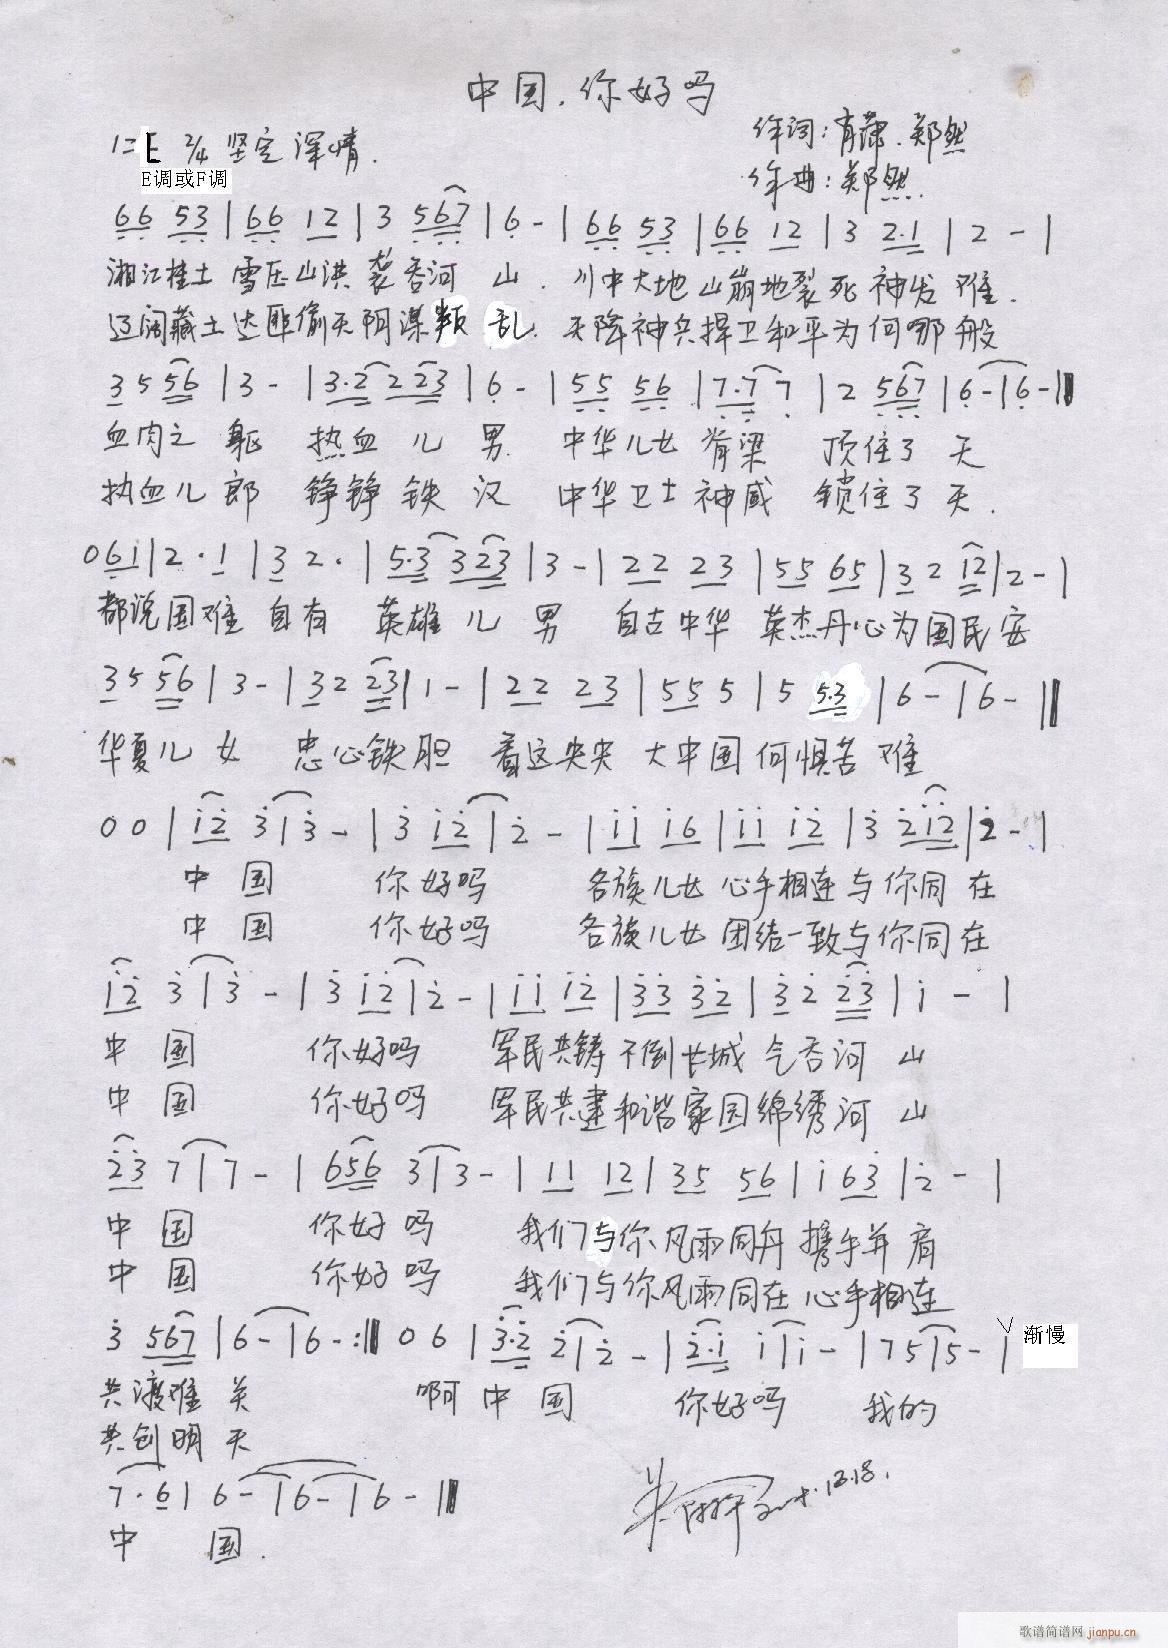 中国,你好吗
1=E 2/4 坚定 深情.
作词:肖萧、郑然
E调或F调
作曲:郑然
66 53 | 66 12 | 3 567 | 6 - | 66 53 | 66 12 | 3 2·1 | 2 - |
湘江桂土 雪压山洪 袭吞河 山. 川中大地 山崩地裂 死神发难.
辽阔藏土 达匪偷天 阴谋叛 乱. 天降神兵捍卫和平为何哪般
3 5 56 | 3 - | 3·2 2 23 | 6 - | 55 56 | 7·7 7 | 2 567 | 6 - | 6 - ‖
血肉之 躯 热血 儿 男. 中华儿女 脊梁 顶住了 天
热血儿 郎 铮铮 铁 汉 中华卫士 神威 锁住了 天.
0 61 | 2 · 1 | 3 2 · | 5·3 3 23 | 3 - | 22 23 | 55 65 | 3 2 12 | 2 - |
都说国难 自有 英雄 儿 男 自古中华 英杰丹心为国民安
3 5 56 | 3 - | 3 2 23 | 1 - | 22 23 | 55 5 | 5 5·3 | 6 - | 6 - ‖
华夏儿 女 忠心铁胆 看这泱泱 大中国何惧苦 难
0 0 | i2 3 | 3 - | 3 i2 | 2 - | ii i6 | ii i2 | 3 2i2 | 2 - |
中 国 你好吗 各族儿女 心手相连与你同 在
中 国 你好吗 各族儿女 团结一致与你同在
i2 3 | 3 - | 3 i2 | 2 - | ii i2 | 33 32 | 3 2 23 | i - |
中 国 你好吗 军民共铸 不倒长城 气吞河 山
中 国 你好吗 军民共建 和谐家园 绵绣河 山
23 7 | 7 - | 656 3 | 3 - | 11 12 | 35 56 | i 63 | 2 - |
中 国 你好吗 我们与你 风雨同舟 携手并肩
中 国 你好吗 我们与你风雨同在 心手相连
3 567 | 6 - | 6 - :‖ 0 6 | 3·2 2 | 2 - | 2·i i | i - | 7 5 | 5 - | V 渐慢
共渡难 关 啊 中 国 你好吗 我的
共创明 天
7 · 6 | 6 - | 6 - | 6 - ‖
12.18.
中 国.
歌谱简谱网 jianpu.cn